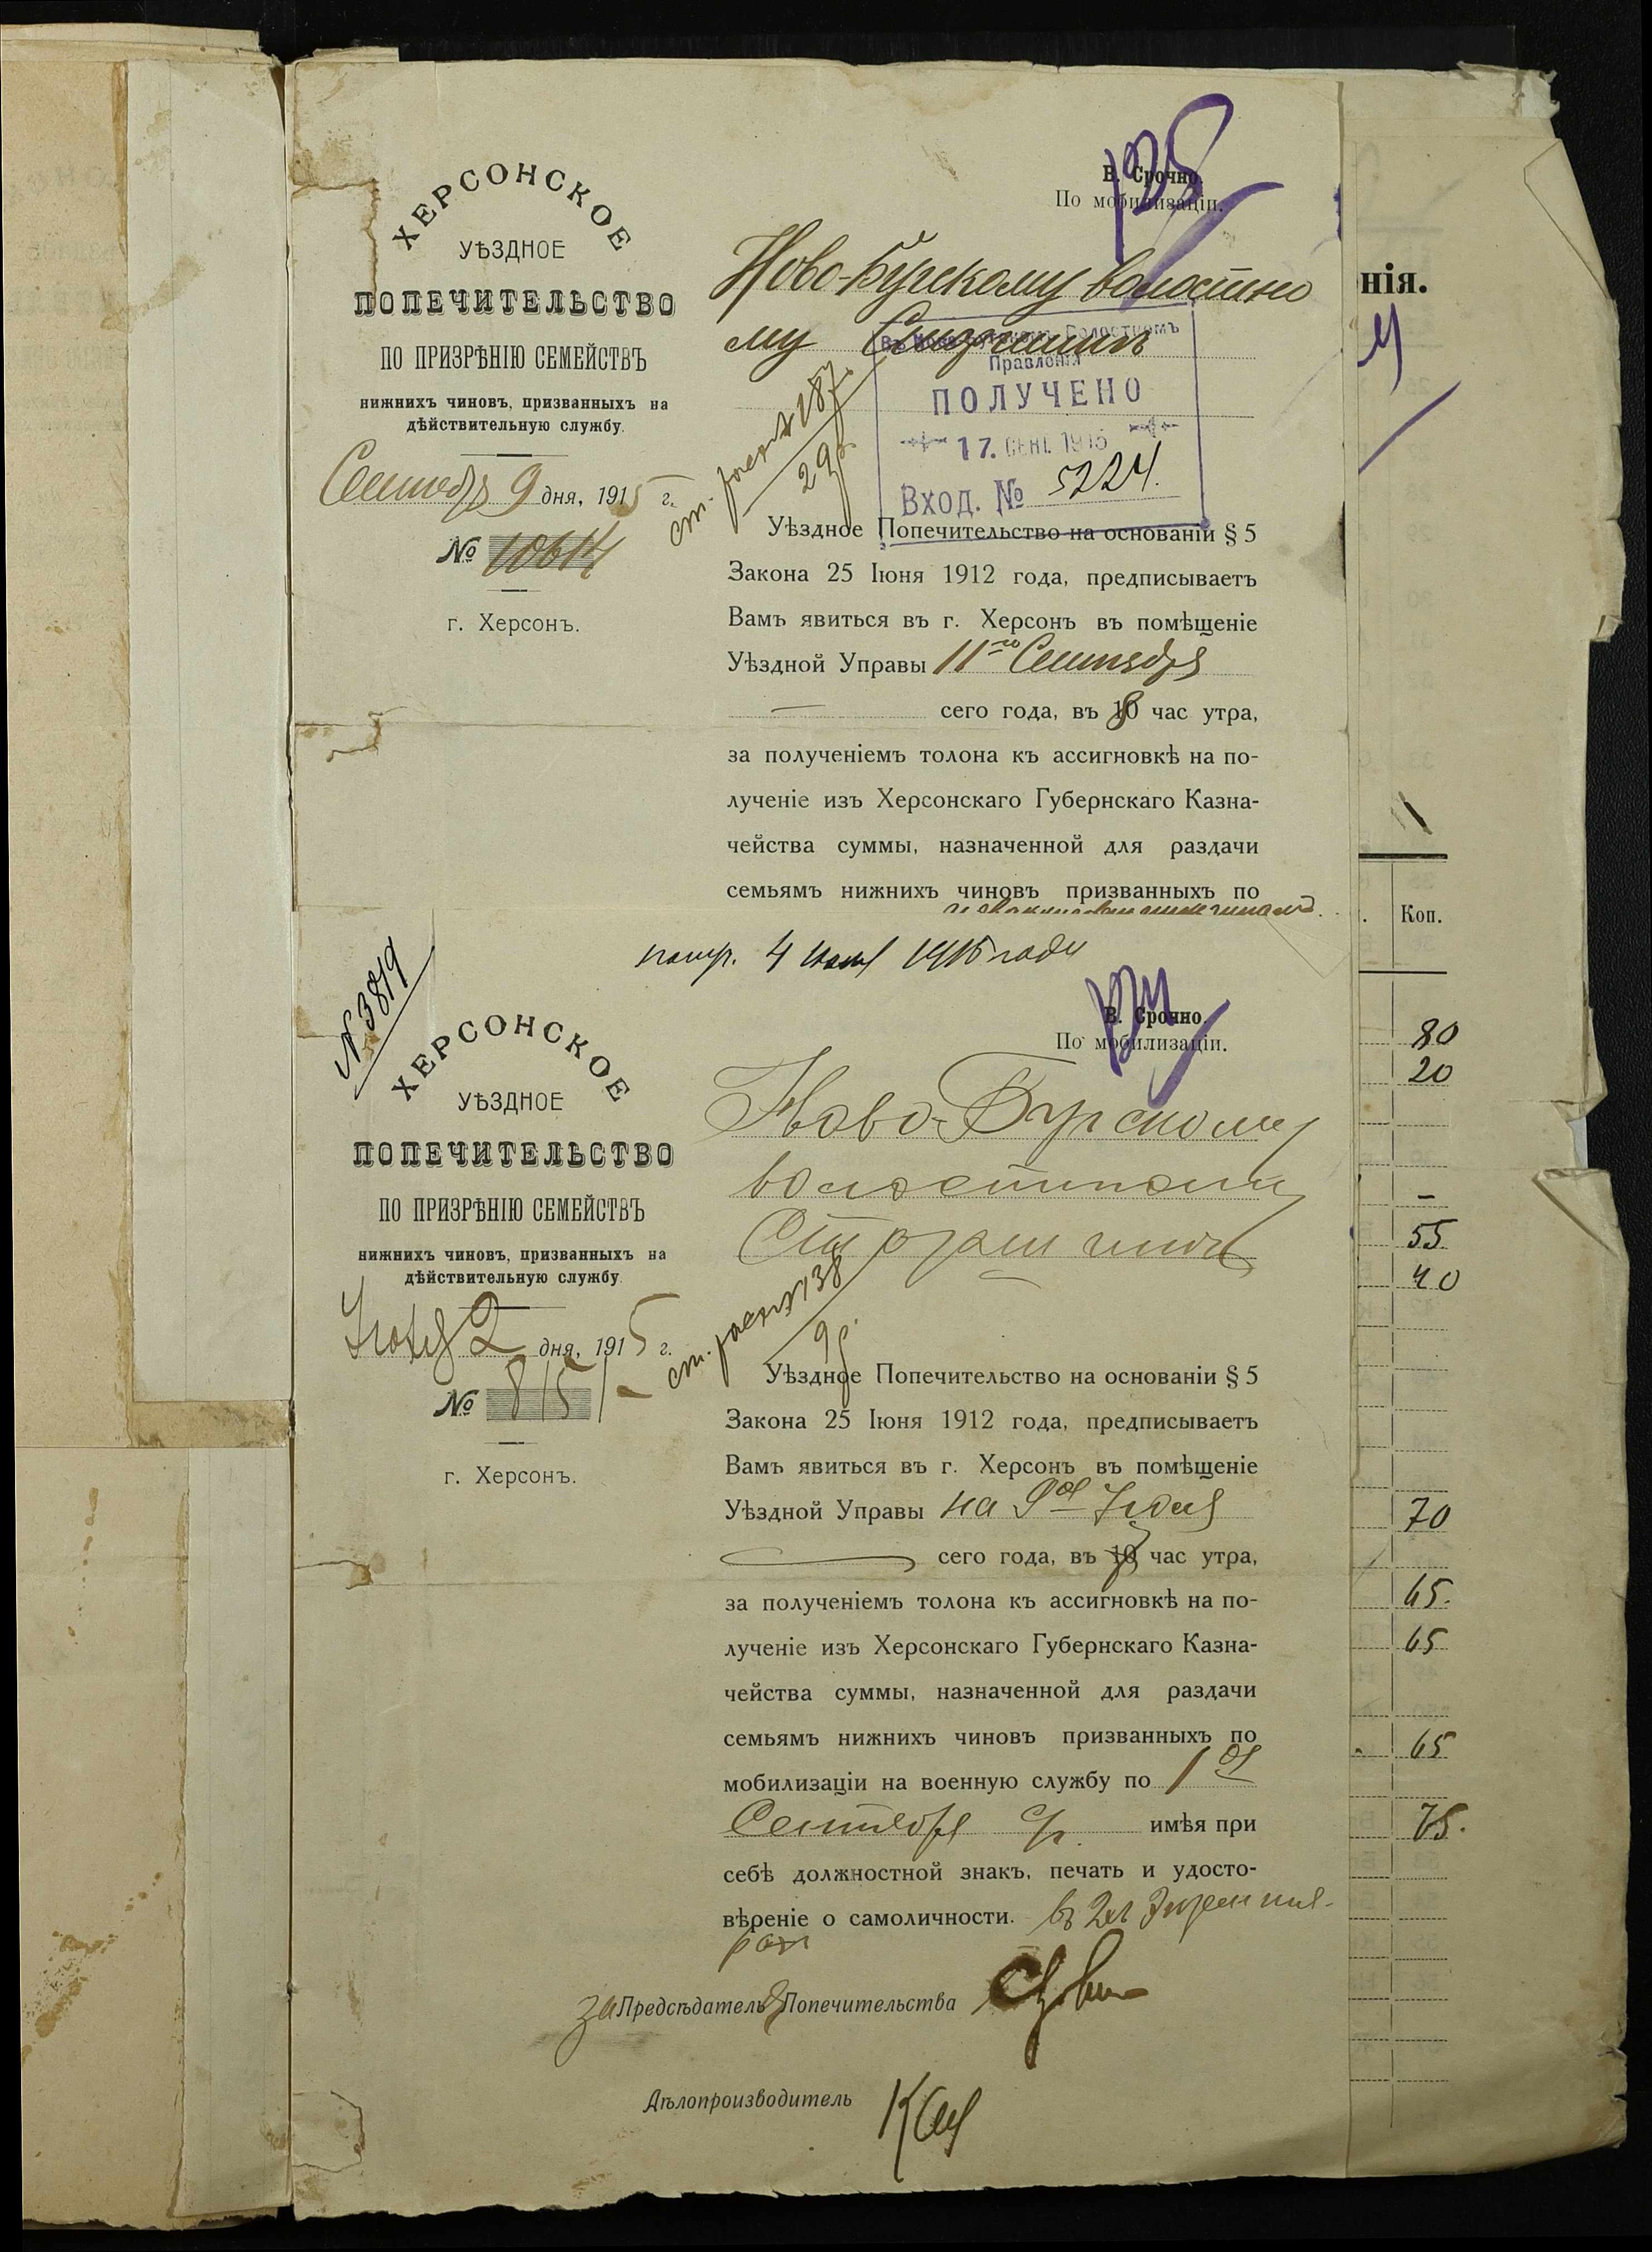 В. Срочно.
По мобилизаціи.
ХЕРСОНСКОЕ
УѢЗДНОЕ
ПОПЕЧИТЕЛЬСТВО
ПО ПРИЗРѢНІЮ СЕМЕЙСТВЪ
нижнихъ чиновъ, призванныхъ на
дѣйствительную службу.
Сентябр 9 дня, 1915 г.
№ 10614
г. Херсонъ.
Ново-Бугскому волостно
му Старшинѣ
Волостномъ
Правленіи
ПОЛУЧЕНО
17. СЕНТ. 1915
Вход. № 5224.
187
29р.
Уѣздное Попечительство на основаніи § 5
Закона 25 Іюня 1912 года, предписываетъ
Вамъ явиться въ г. Херсонъ въ помѣщеніе
Уѣздной Управы 11го Сентября
сего года, въ час утра,
за полученіемъ толона къ ассигновкѣ на по-
лученіе изъ Херсонскаго Губернскаго Казна-
чейства суммы, назначенной для раздачи
семьямъ нижнихъ чиновъ призванныхъ по
4 1915 года
№ 3819
В. Срочно.
По мобилизаціи.
ХЕРСОНСКОЕ
УѢЗДНОЕ
ПОПЕЧИТЕЛЬСТВО
ПО ПРИЗРѢНІЮ СЕМЕЙСТВЪ
нижнихъ чиновъ, призванныхъ на
дѣйствительную службу.
2 дня, 1915 г.
№ 8151
г. Херсонъ.
Ново-Бугскому
волостному
Старшинѣ
138
9р.
Уѣздное Попечительство на основаніи § 5
Закона 25 Іюня 1912 года, предписываетъ
Вамъ явиться въ г. Херсонъ въ помѣщеніе
Уѣздной Управы на
сего года, въ час утра,
за полученіемъ толона къ ассигновкѣ на по-
лученіе изъ Херсонскаго Губернскаго Казна-
чейства суммы, назначенной для раздачи
семьямъ нижнихъ чиновъ призванныхъ по
мобилизаціи на военную службу по 1ое
Сентября с/г. имѣя при
себѣ должностной знакъ, печать и удосто-
вѣреніе о самоличности. въ 2хъ Экземпля-
рахъ
за Предсѣдателя Попечительства
Дѣлопроизводитель
нія.
Коп.
80
20
–
55
40
70
65.
65
65
75.